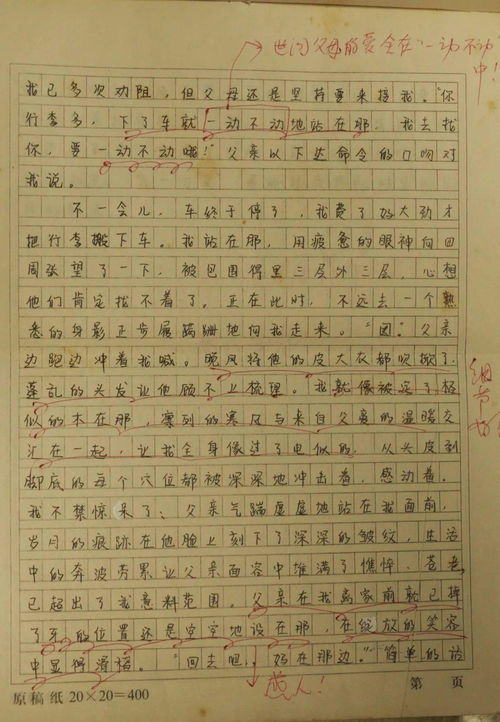 世间父母的爱全在"一动不动"中!
我已多次劝阻,但父母还是坚持要来接我。"你
行李多,下了车就一动不动地站在那,我去找
你,要一动不动哦!"父亲以下达命令的口吻对
我说。
不一会儿,车终于停了,我费了好大劲才
把行李搬下车。我站在那,用疲惫的眼神向四
周张望了一下,被包围得里三层外三层,心想
他们肯定找不着了。正在此时,不远去一个熟
悉的身影正步履蹒跚地向我走来。"团"父亲
边跑边冲着我喊。晚风将他的皮大衣都吹掀了,
蓬乱的头发让他顾不上梳理。我就像被定了
似的木在那,凛冽的寒风与来自父爱的温暖交
汇在一起,让我全身像过了电似的。从头皮到
脚底的每个穴位都被深深地冲击着,感动着。
我不禁惊呆了、父亲气踹虚虚地站在我面前,
岁月的痕跡在他脸上刻下了深深的皱纹,生活
中的奔波劳累让父亲面容中堆满了憔悴、苍老
已超出了我意料范围。父亲在我离家前就已掉
了牙的位置还是空空地设在那,在绽放的笑容
中显得滑稽。"回去吧,妈在那边。"简单的话
细节好
感人!
原稿纸20×20=400
第 页